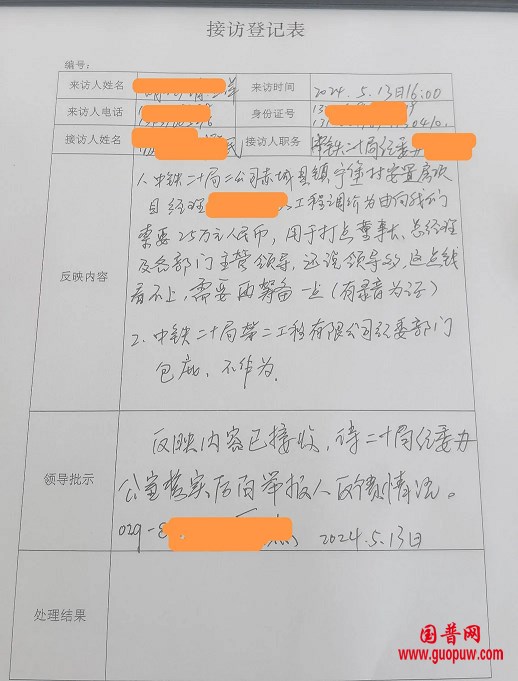 接访登记表
编号：
来访人姓名 来访时间 2024.5.13日16:00
来访人电话 身份证号
接访人姓名 接访人职务 中铁二十局纪委办
反映内容
1、中铁二十局二公司赤城县镇宁堡村安置房项
目经理 以工程调价为由向我们
索要25万元人民币，用于打点董事长、总经理
及各部门主管领导，还说领导的，这点钱
看不上，需要再筹备一点（有录音为证）
2、中铁二十局第二工程有限公司纪委部门
包庇，不作为。
领导批示
反映内容已接收，待二十局纪委办
公室落实后向举报人反馈情况。
029-8
2024.5.13日
处理结果
国普网
www.guopuw.com